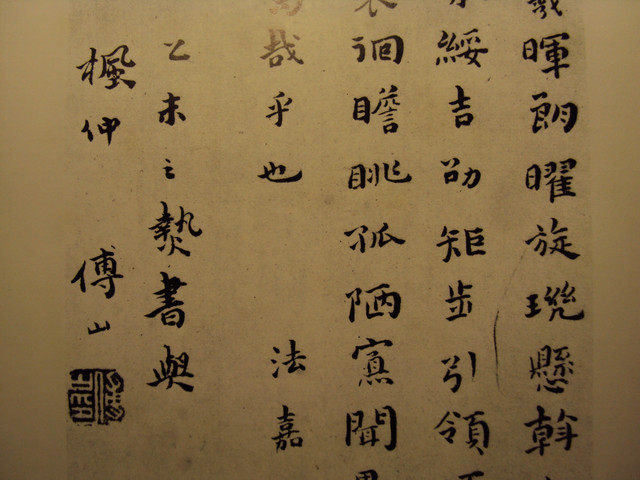 暉朗曜旋璣懸斡
綏吉劭矩步引領
徊瞻眺孤陋寡聞
焉哉乎也 法嘉
乙未之書與
楓仲 傅山